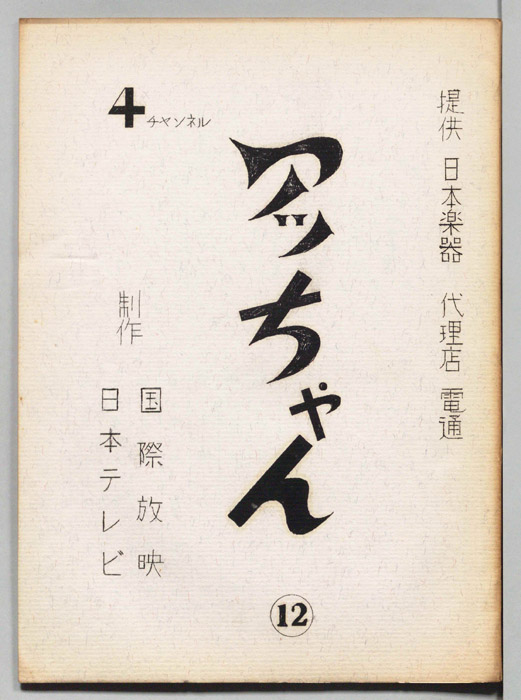 提供 日本楽器 代理店 電通
4チャンネル
アッちゃん
12
制作
国際放映
日本テレビ